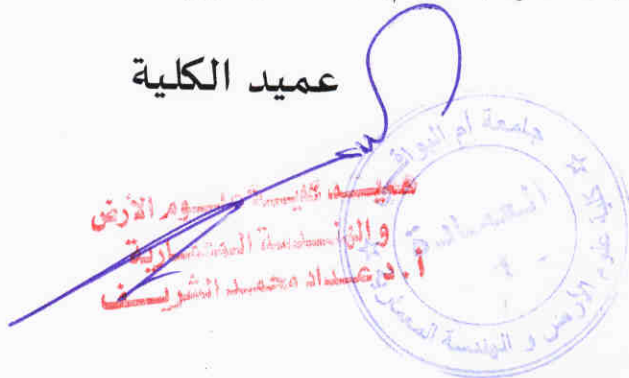 عميد الكلية
عميد كلية علوم الأرض
و الهندسة المعمارية
أ. د عداد محمد الشريف
جامعة أم البواقي
العمادة
كلية علوم الأرض و الهندسة المعمارية